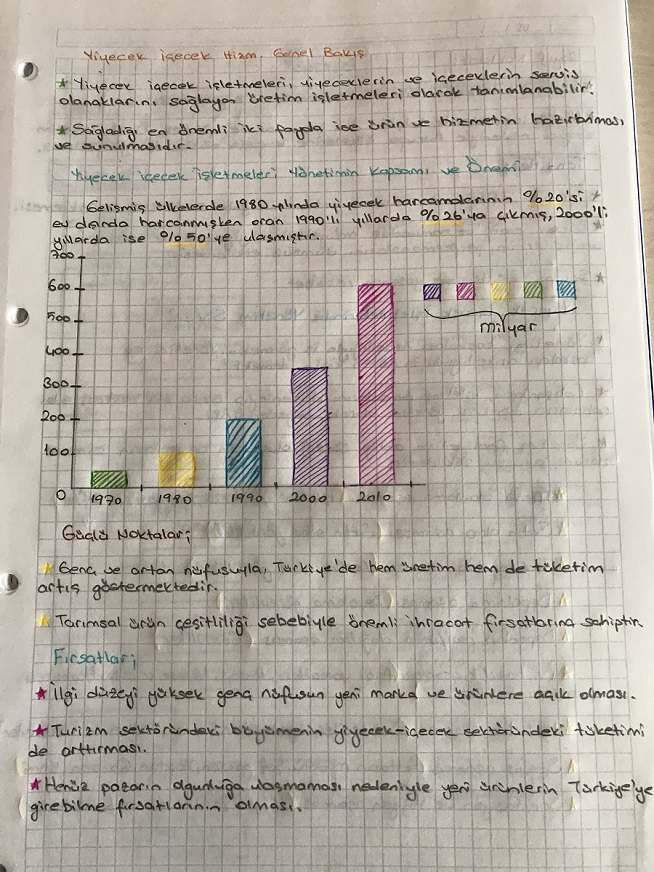 Yiyecek içecek Hizm. Genel Bakış
★ Yiyecek içecek işletmeleri, yiyeceklerin ve içeceklerin servis
olanaklarını sağlayan üretim işletmeleri olarak tanımlanabilir.
★ Sağladığı en önemli iki fayda ise ürün ve hizmetin hazırlanması
ve sunulmasıdır.
Yiyecek içecek işletmeleri Yönetimin Kapsamı ve Önemi
Gelişmiş ülkelerde 1980 yılında yiyecek harcamalarının %20'si
ev dışında harcanmışken oran 1990'lı yıllarda %26'ya çıkmış, 2000'li
yıllarda ise %50'ye ulaşmıştır.
700
600
500
milyar
400
300
200
100
0
1970 1980 1990 2000 2010
Güçlü Noktalar;
★ Genç ve artan nüfusuyla, Türkiye'de hem üretim hem de tüketim
artış göstermektedir.
★ Tarımsal ürün çeşitliliği sebebiyle önemli ihracat fırsatlarına sahiptir.
Fırsatlar;
★ İlgi düzeyi yüksek genç nüfusun yeni marka ve ürünlere açık olması.
★ Turizm sektöründeki büyümenin yiyecek-içecek sektöründeki tüketimi
de arttırması.
★ Henüz pazarın olgunluğa ulaşmaması nedeniyle yeni ürünlerin Türkiye'ye
girebilme fırsatlarının olması.